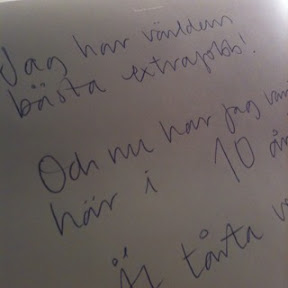 Jag har världens
bästa extrajobb!
Och nu har jag
här i 10 år
tårta